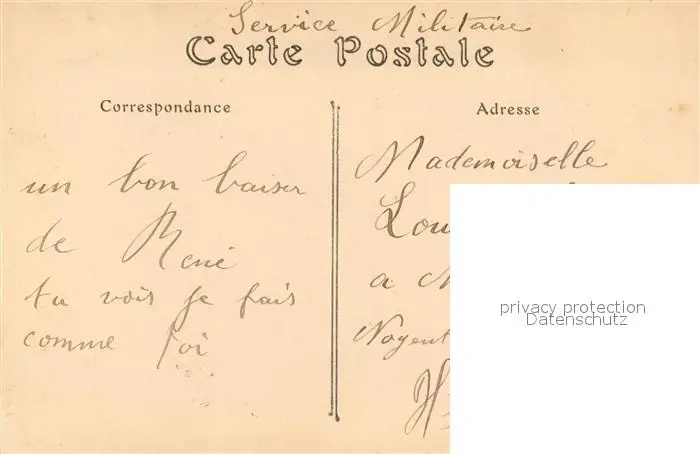 Service Militaire
Carte Postale
Correspondance
Adresse
un bon baiser
de René
tu vois je fais
comme toi
Mademoiselle
a
Nogent
privacy protection
Datenschutz